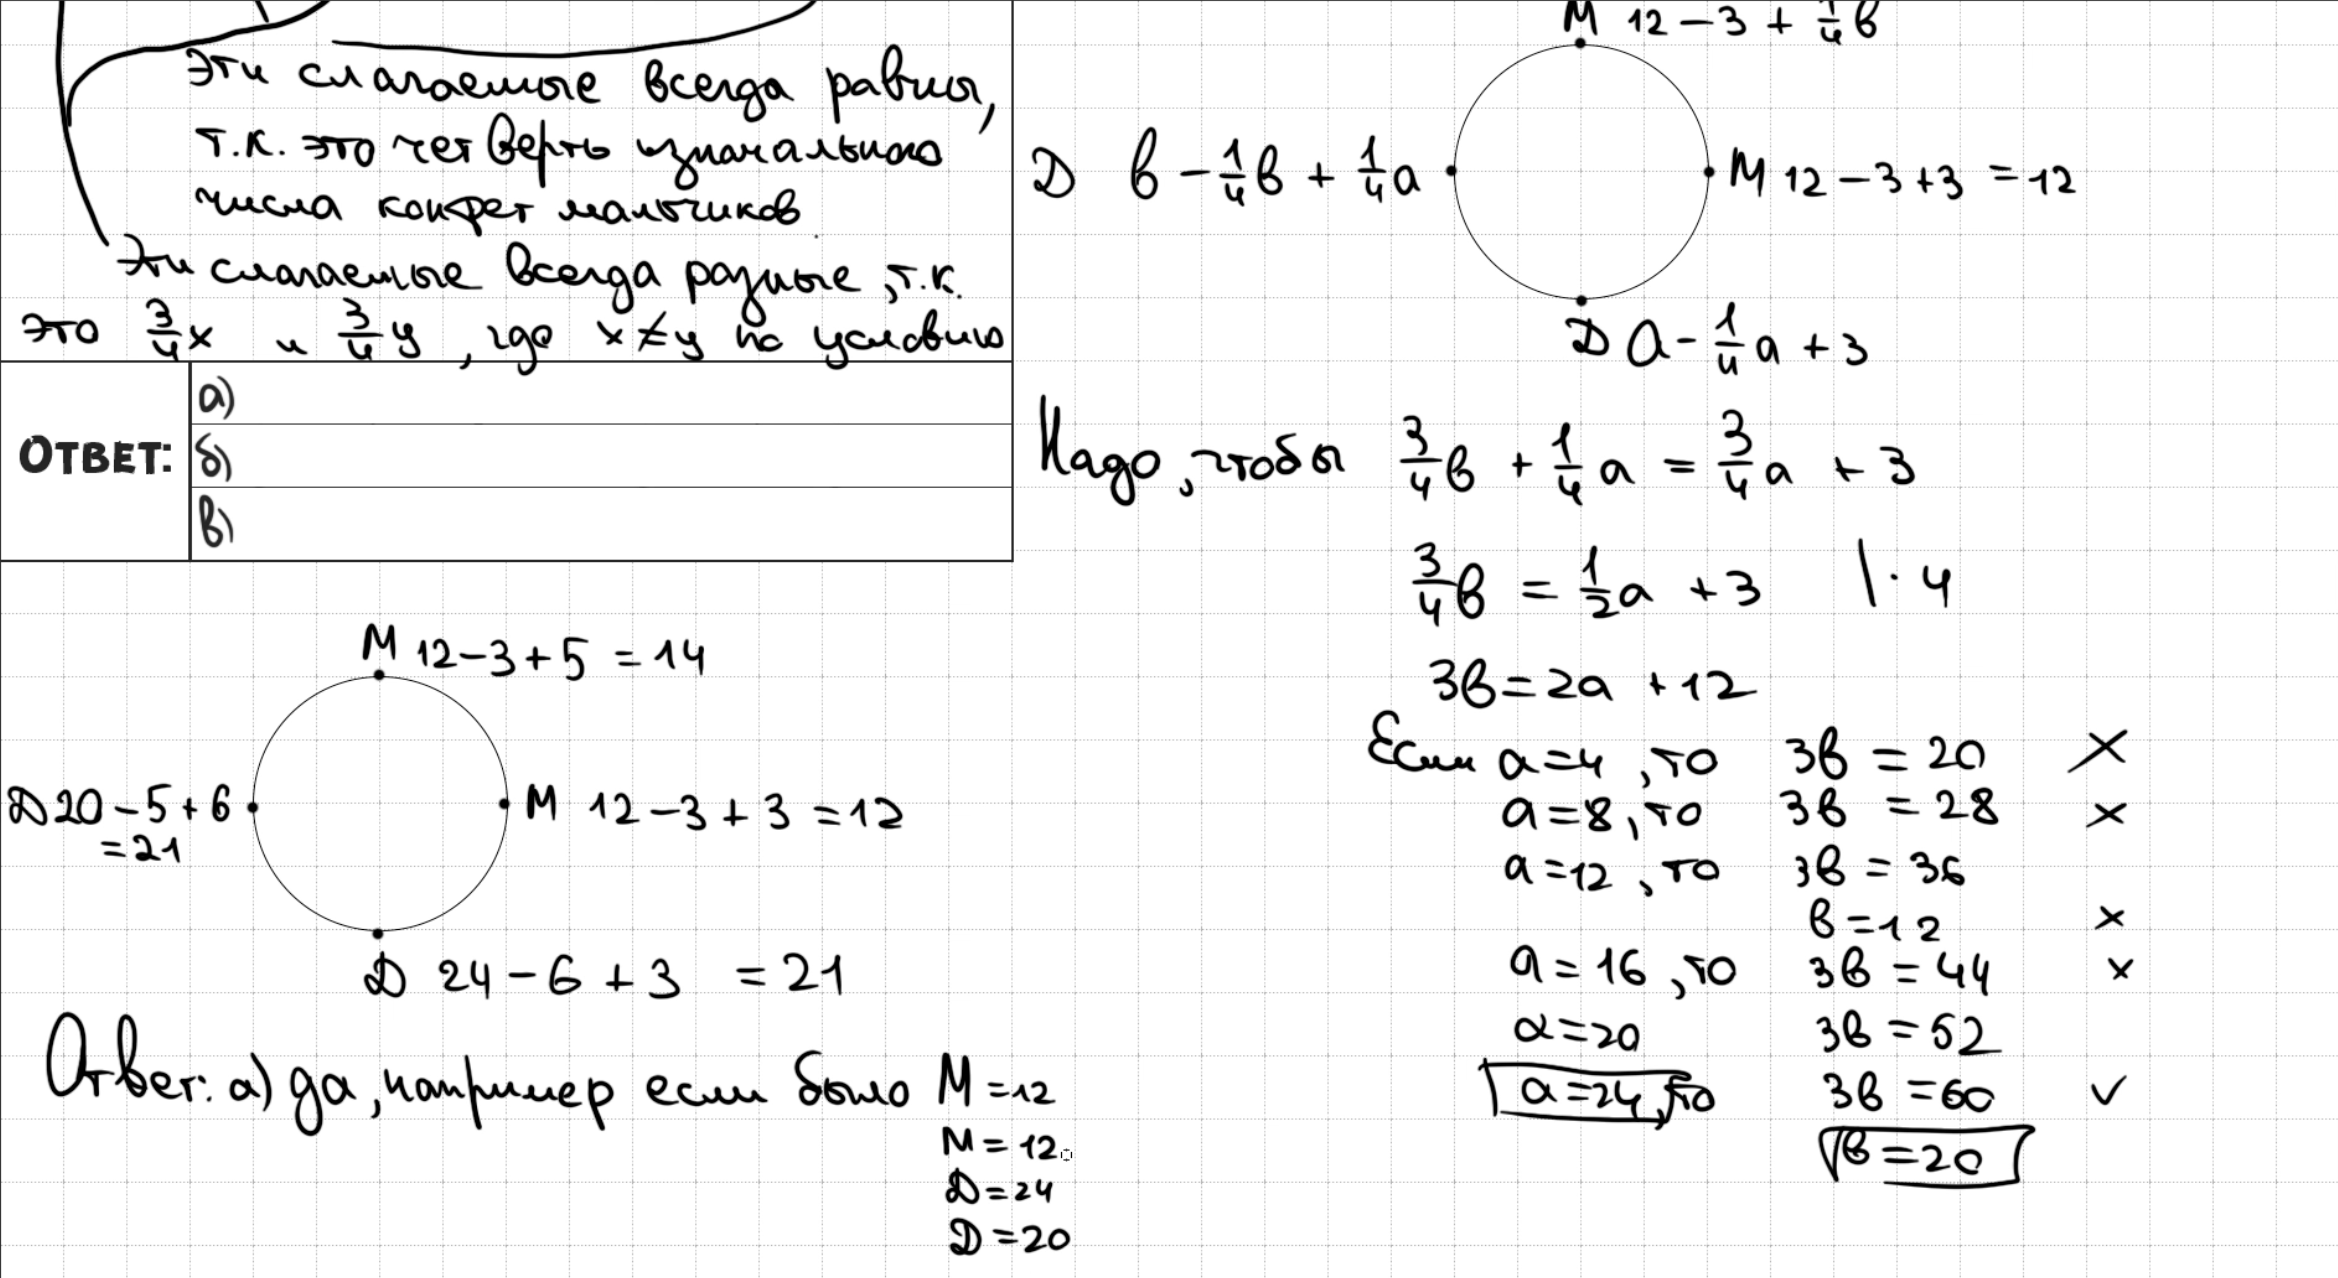 Эти слагаемые всегда равны,
т.к. это четверть изначального
числа конфет мальчиков
Эти слагаемые всегда разные, т.к.
это 3/4x и 3/4y, где x≠y по условию
ОТВЕТ:
а)
б)
в)
М 12-3+5 = 14
Д 20-5+6
=21
М 12-3+3 =12
Д 24-6+3 =21
Ответ: а) да, например если было М =12
М = 12
Д =24
Д =20
М 12-3+1/4в
Д в-1/4в+1/4а
М 12-3+3 =12
Д а-1/4а+3
Надо, чтобы 3/4в + 1/4а = 3/4а + 3
3/4в = 1/2а +3 |·4
3в=2а +12
Если а=4, то 3в = 20 ×
а=8, то 3в = 28 ×
а=12, то 3в = 36
в=12 ×
а=16, то 3в = 44 ×
а=20 3в =52
а=24, то 3в =60 ✓
в=20